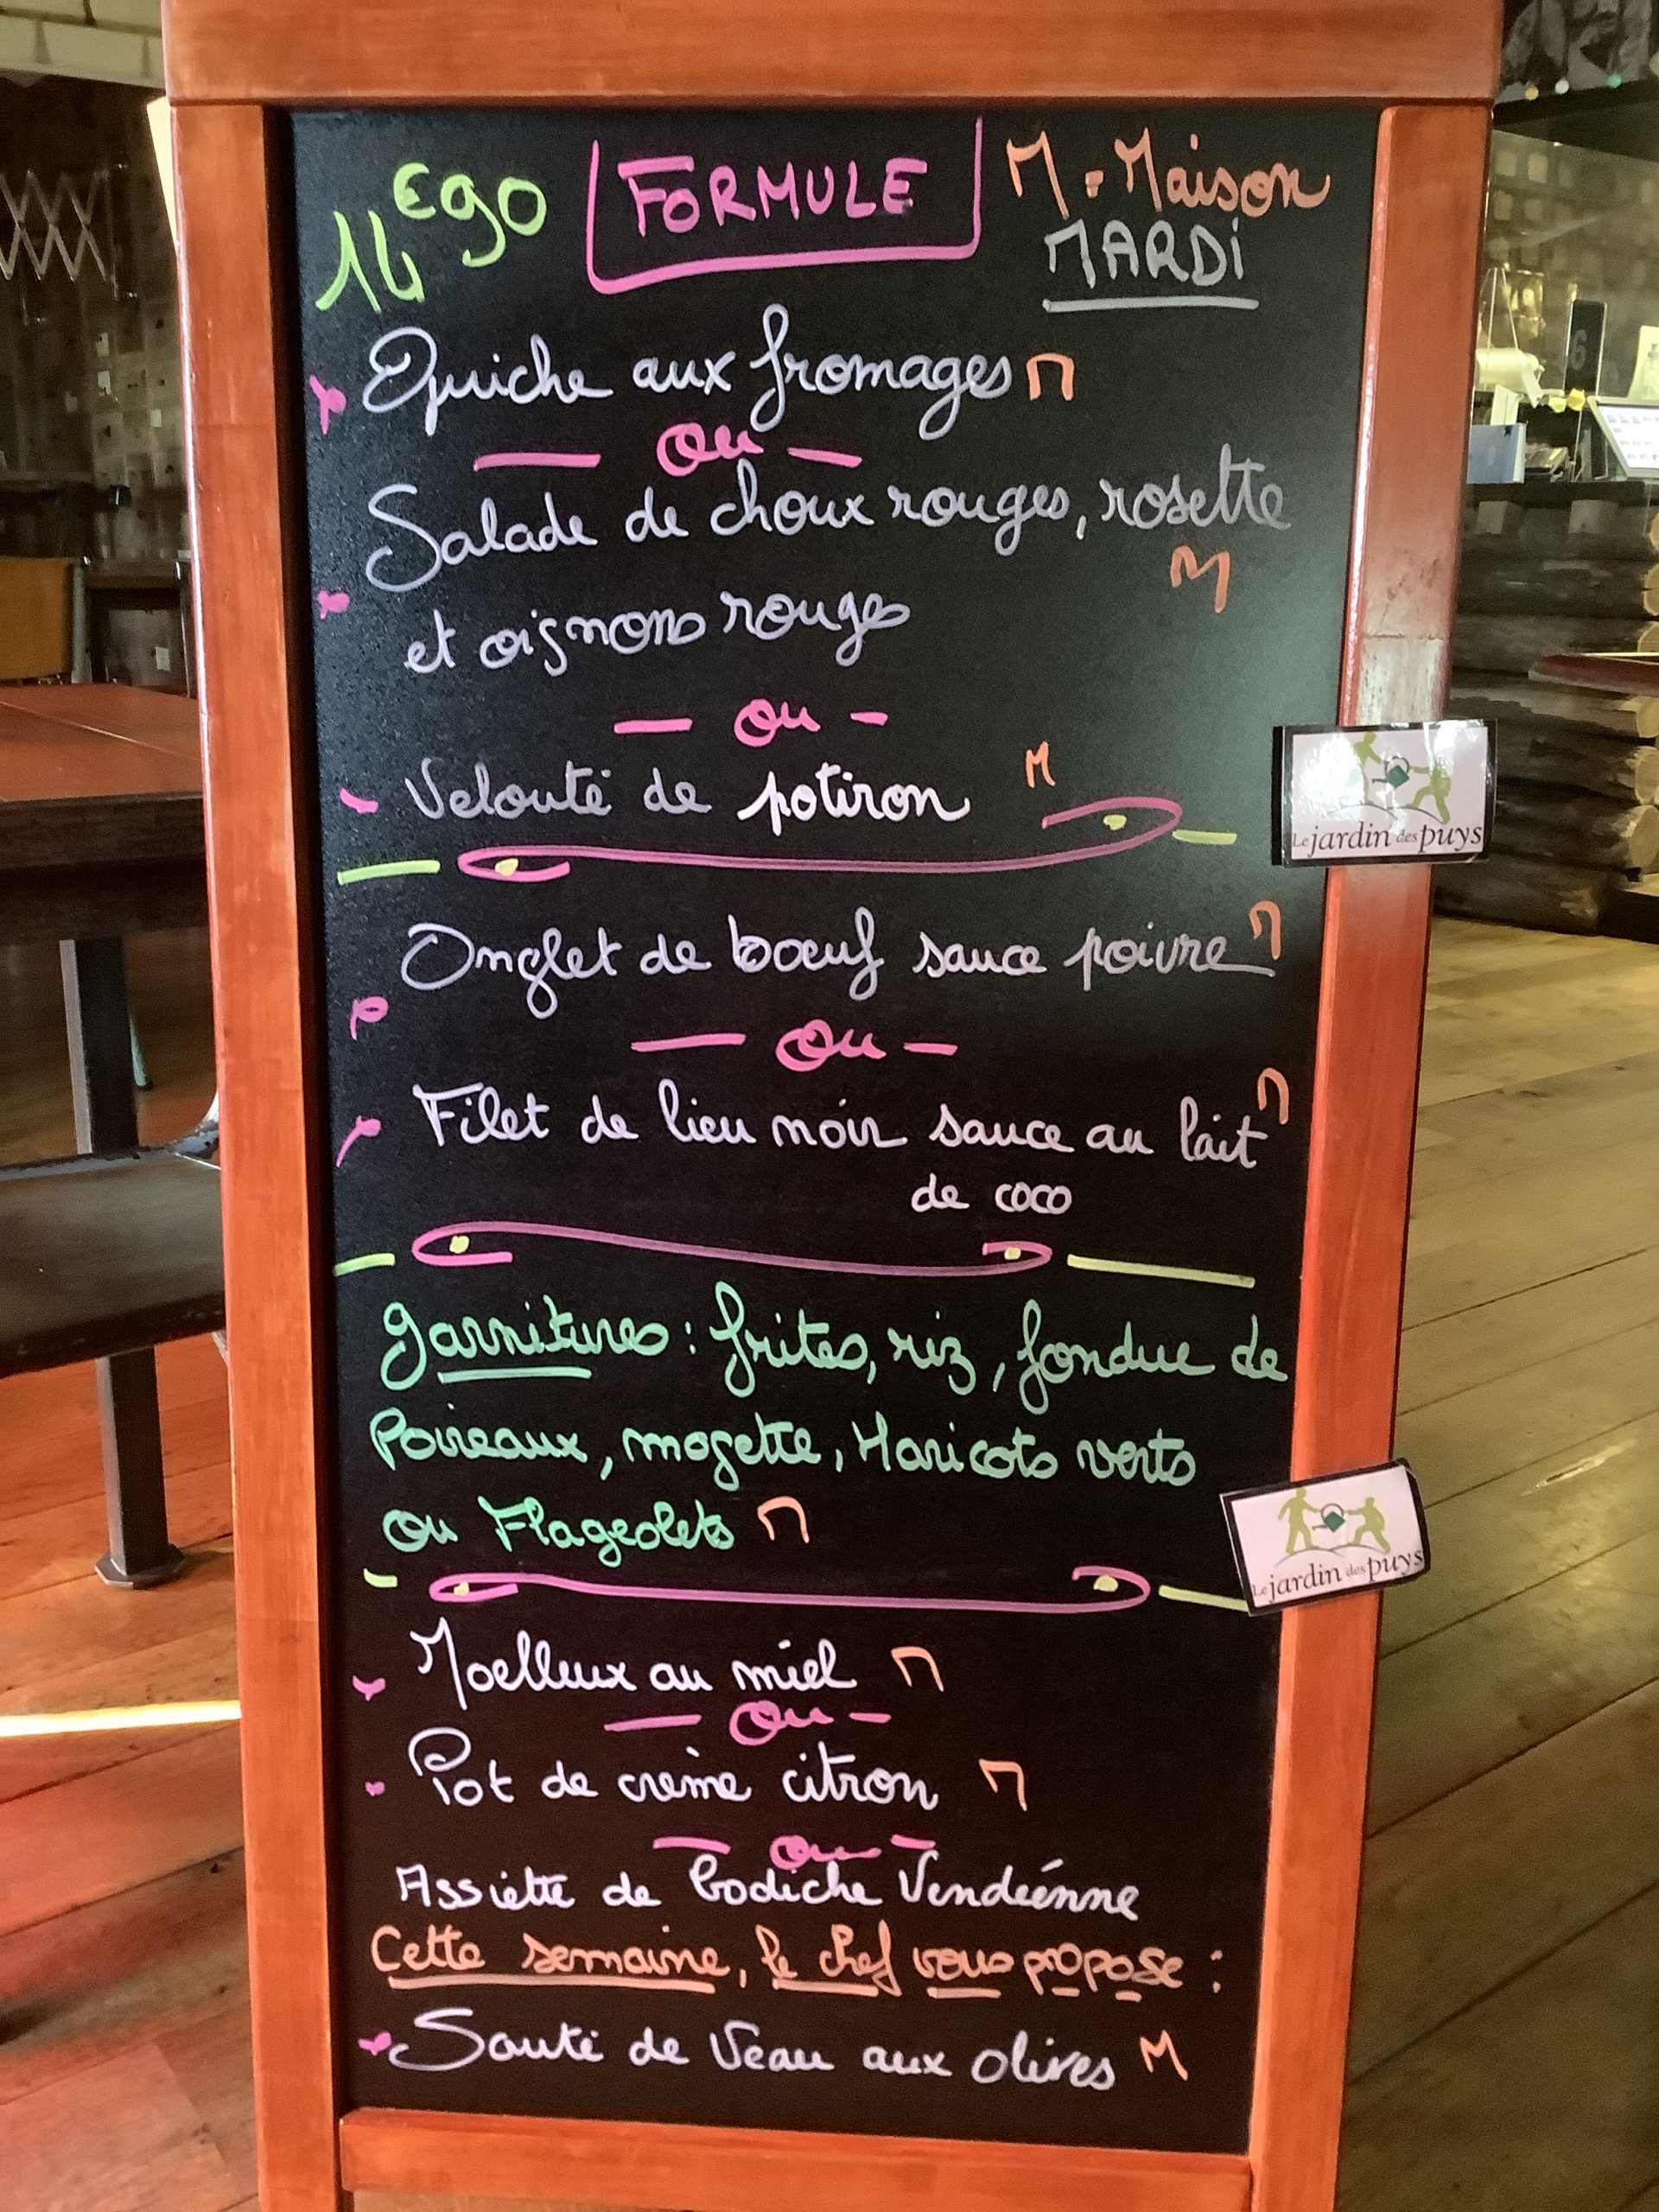 14€90 FORMULE M = Maison
MARDI
Quiche aux fromages M
— ou —
Salade de choux rouges, rosette
M
et oignons rouges
— ou —
Velouté de potiron M
Le jardin des puys
Onglet de boeuf sauce poivre M
— ou —
Filet de lieu noir sauce au lait M
de coco
Garnitures : frites, riz, fondue de
Poireaux, mogette, Haricots verts
ou Flageolets M
Le jardin des puys
Moelleux au miel M
— ou —
Pot de crème citron M
— ou —
Assiette de bodiche Vendéenne
Cette semaine, le chef vous propose :
Sauté de Veau aux olives M